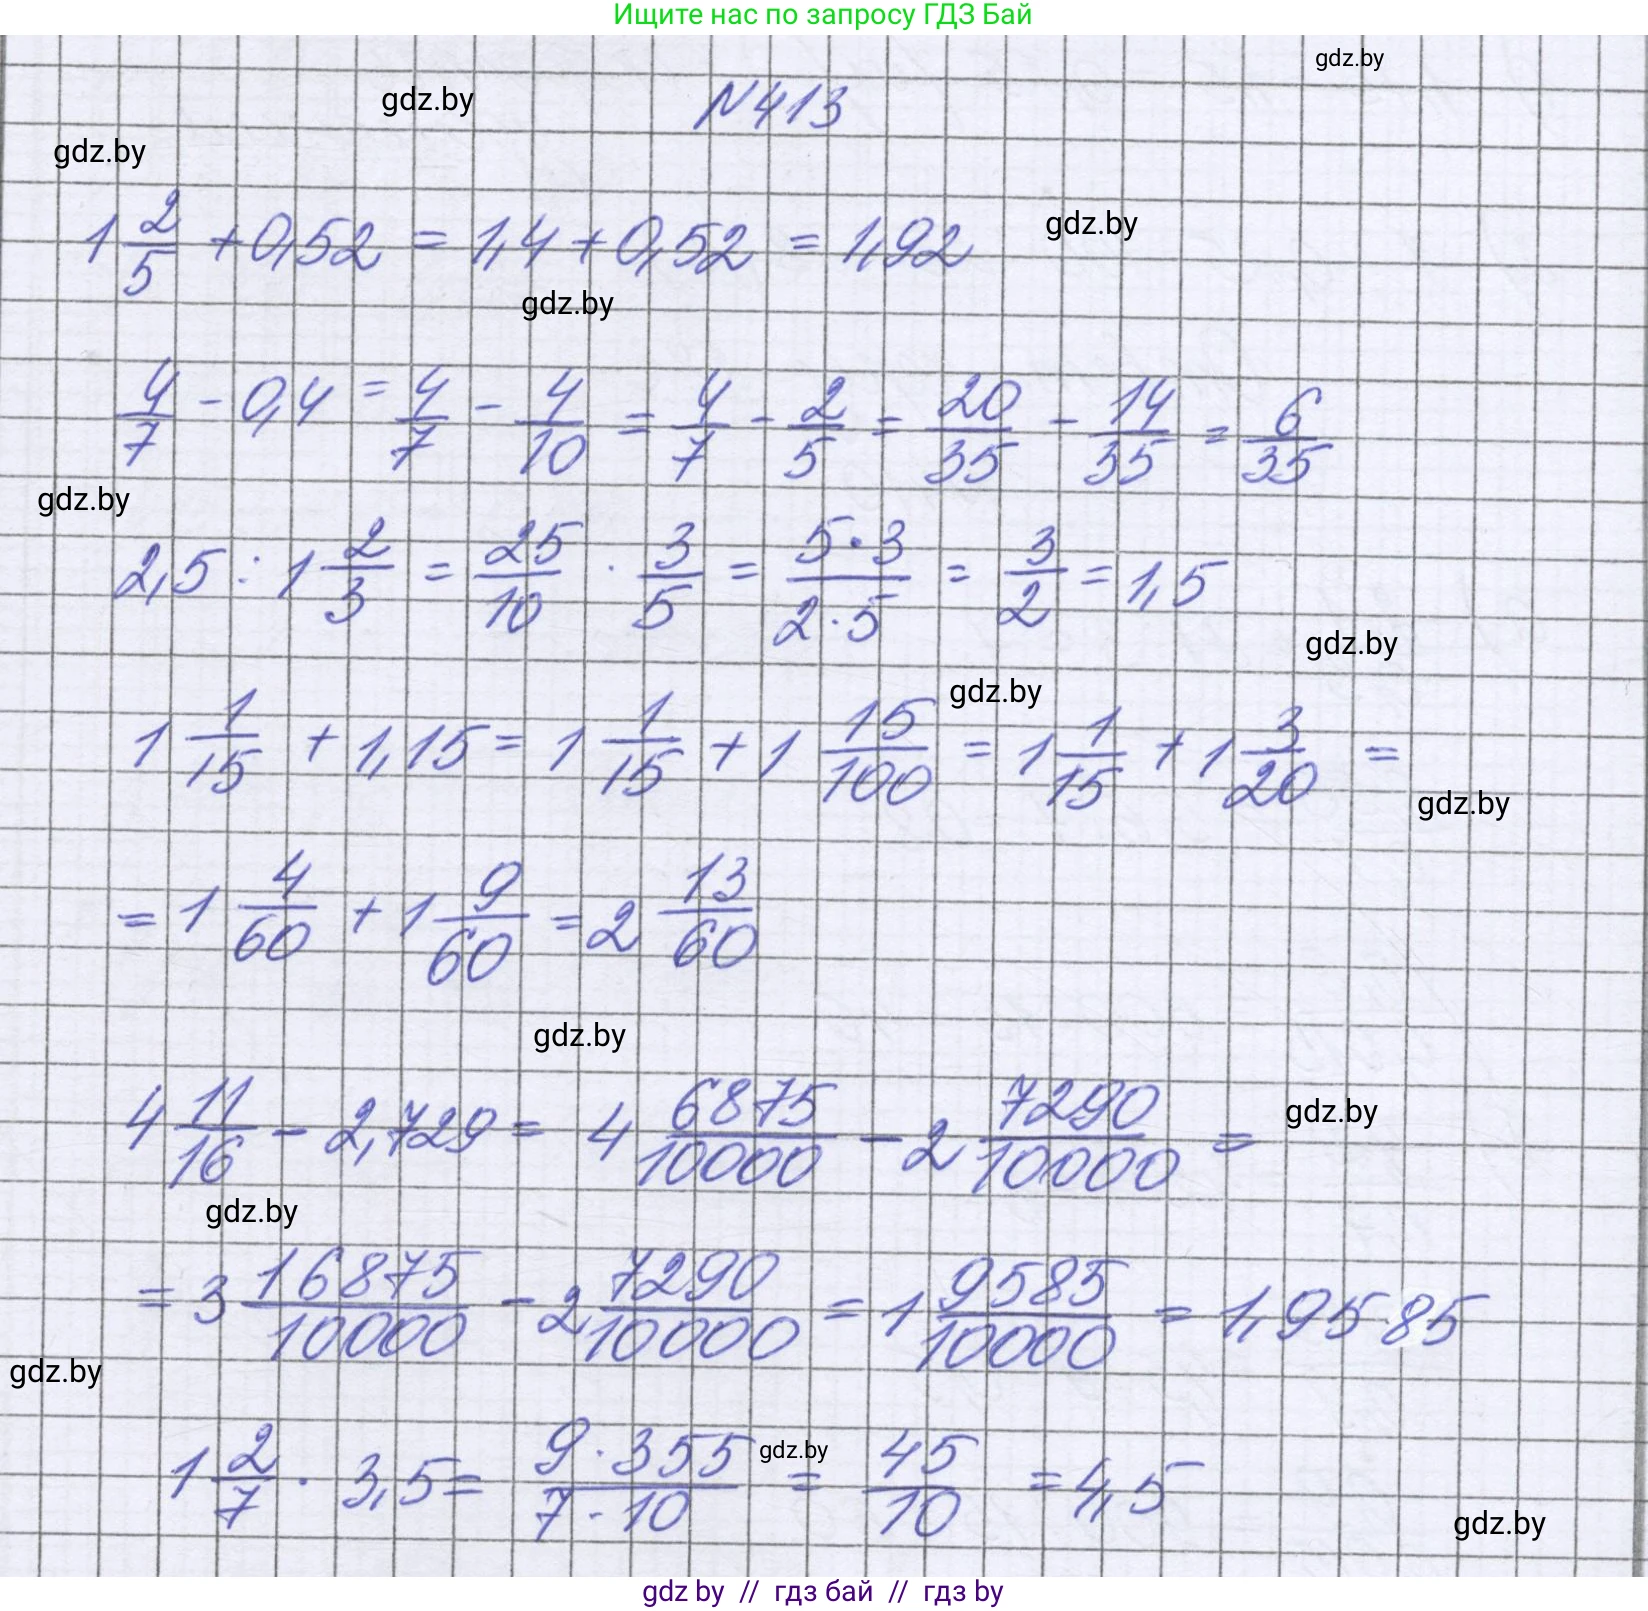 Ищите нас по запросу ГДЗ Бай
gdz.by
gdz.by
N413
gdz.by
1 2/5 + 0,52 = 1,4 + 0,52 = 1,92
gdz.by
gdz.by
4/7 - 0,4 = 4/7 - 4/10 = 4/7 - 2/5 = 20/35 - 14/35 = 6/35
gdz.by
2,5 : 1 2/3 = 25/10 · 3/5 = 5·3/2·5 = 3/2 = 1,5
gdz.by
gdz.by
1 1/15 + 1,15 = 1 1/15 + 1 15/100 = 1 1/15 + 1 3/20 =
gdz.by
= 1 4/60 + 1 9/60 = 2 13/60
gdz.by
4 11/16 - 2,729 = 4 6875/10000 - 2 7290/10000 =
gdz.by
gdz.by
= 3 16875/10000 - 2 7290/10000 = 1 9585/10000 = 1,9585
gdz.by
1 2/7 · 3,5 = 9·355/7·10 = 45/10 = 4,5
gdz.by
gdz.by
gdz by // гдз бай // гдз by